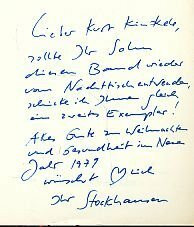 Lieber Kurt
sollte Ihr Sohn
diesen Band wieder
vom Nachttisch entwenden,
schicke ich Ihnen gleich
ein zweites Exemplar!
Alles Gute zu Weihnachten
und Gesundheit im Neuen
Jahr 1979
wünscht
Ihr Stockhausen